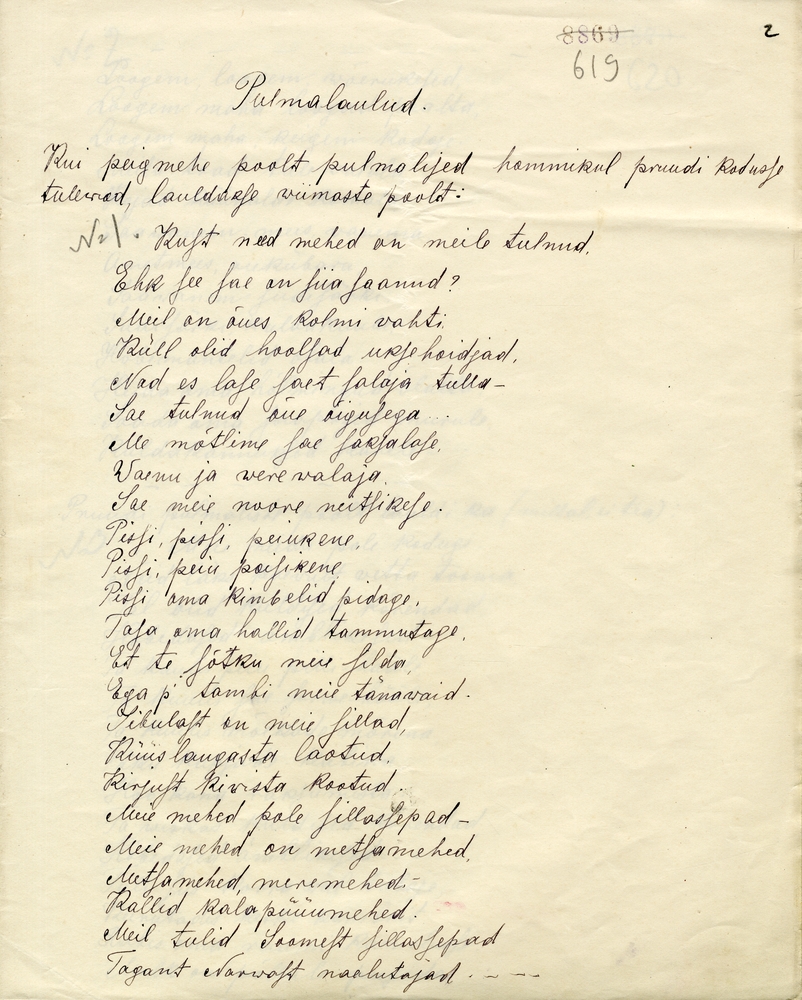 8869
2
619
Pulmalaulud.
Kui peigmehe poolt pulmalised hommikul pruudi kodusse
tulewad, lauldakse viimaste poolt:
№1. Kust need mehed on meile tulnud,
Ehk see sae on siia saanud?
Meil on õues kolmi vahti,
Küll olid hoolsad uksehoidjad,
Nad es lase saet salaja tulla –
Sae tulnud õue õigusega...
Me mõtlime sae saksalase,
Vaenu ja were valaja,
Sae meie noore neitsikese.
Pissi, pissi, peiukene,
Pissi, peiu poisikene,
Pissi oma kimbelid pidage,
Tasa oma hallid tammutage,
Et te sõtku meie silda,
Ega p' tambi meie tänavaid.
Sibulast on meie sillad,
Küüslaugasta laotud,
Kirjust kivista kootud.
Meie mehed pole sillassepad –
Meie mehed on metsamehed,
Metsamehed, meremehed –
Kallid kalapüüumehed.
Meil tulid Soomest sillassepad
Tagant Narwast naelutajad. – – –